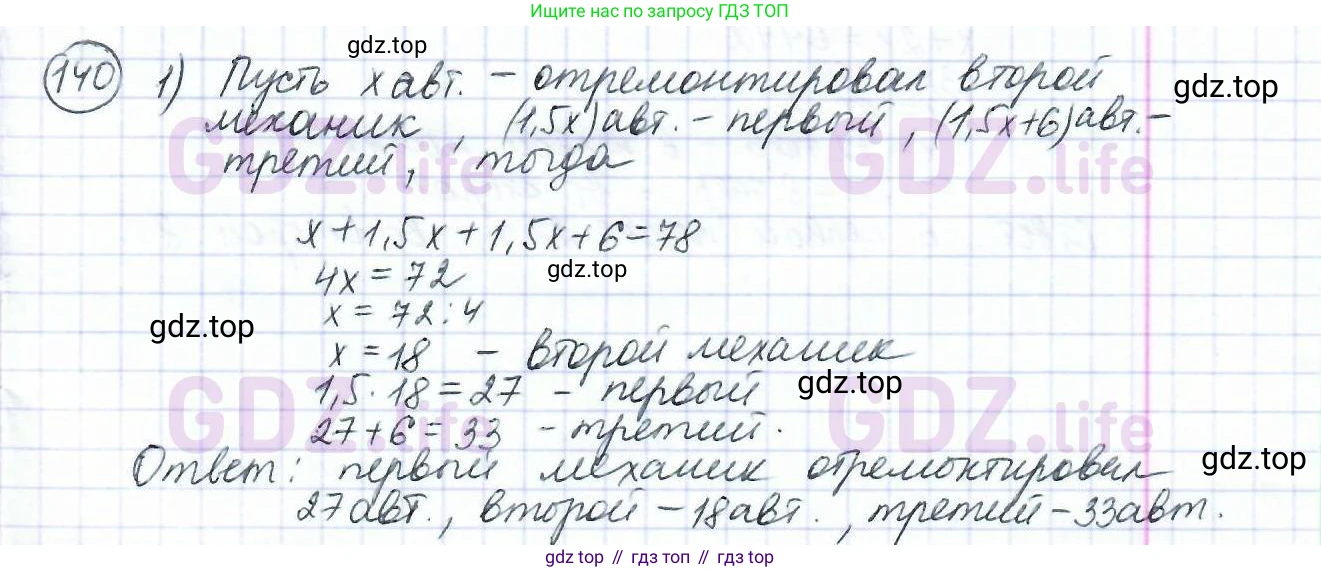 Ищите нас по запросу ГДЗ ТОП
gdz.top
140 1) Пусть x авт. – отремонтировал второй
gdz.top
механик, (1,5x) авт. – первый, (1,5x+6) авт. –
третий, тогда
GDZ.life GDZ.life
x+1,5x+1,5x+6=78
4x=72
gdz.top
x=72:4
gdz.top
x=18 – второй механик
1,5·18=27 – первый
gdz.top
GDZ.life GDZ.life
27+6=33 – третий.
Ответ: первый механик отремонтировал
gdz.top
27 авт., второй – 18 авт., третий – 33 авт.
gdz.top // гдз топ // gdz.top